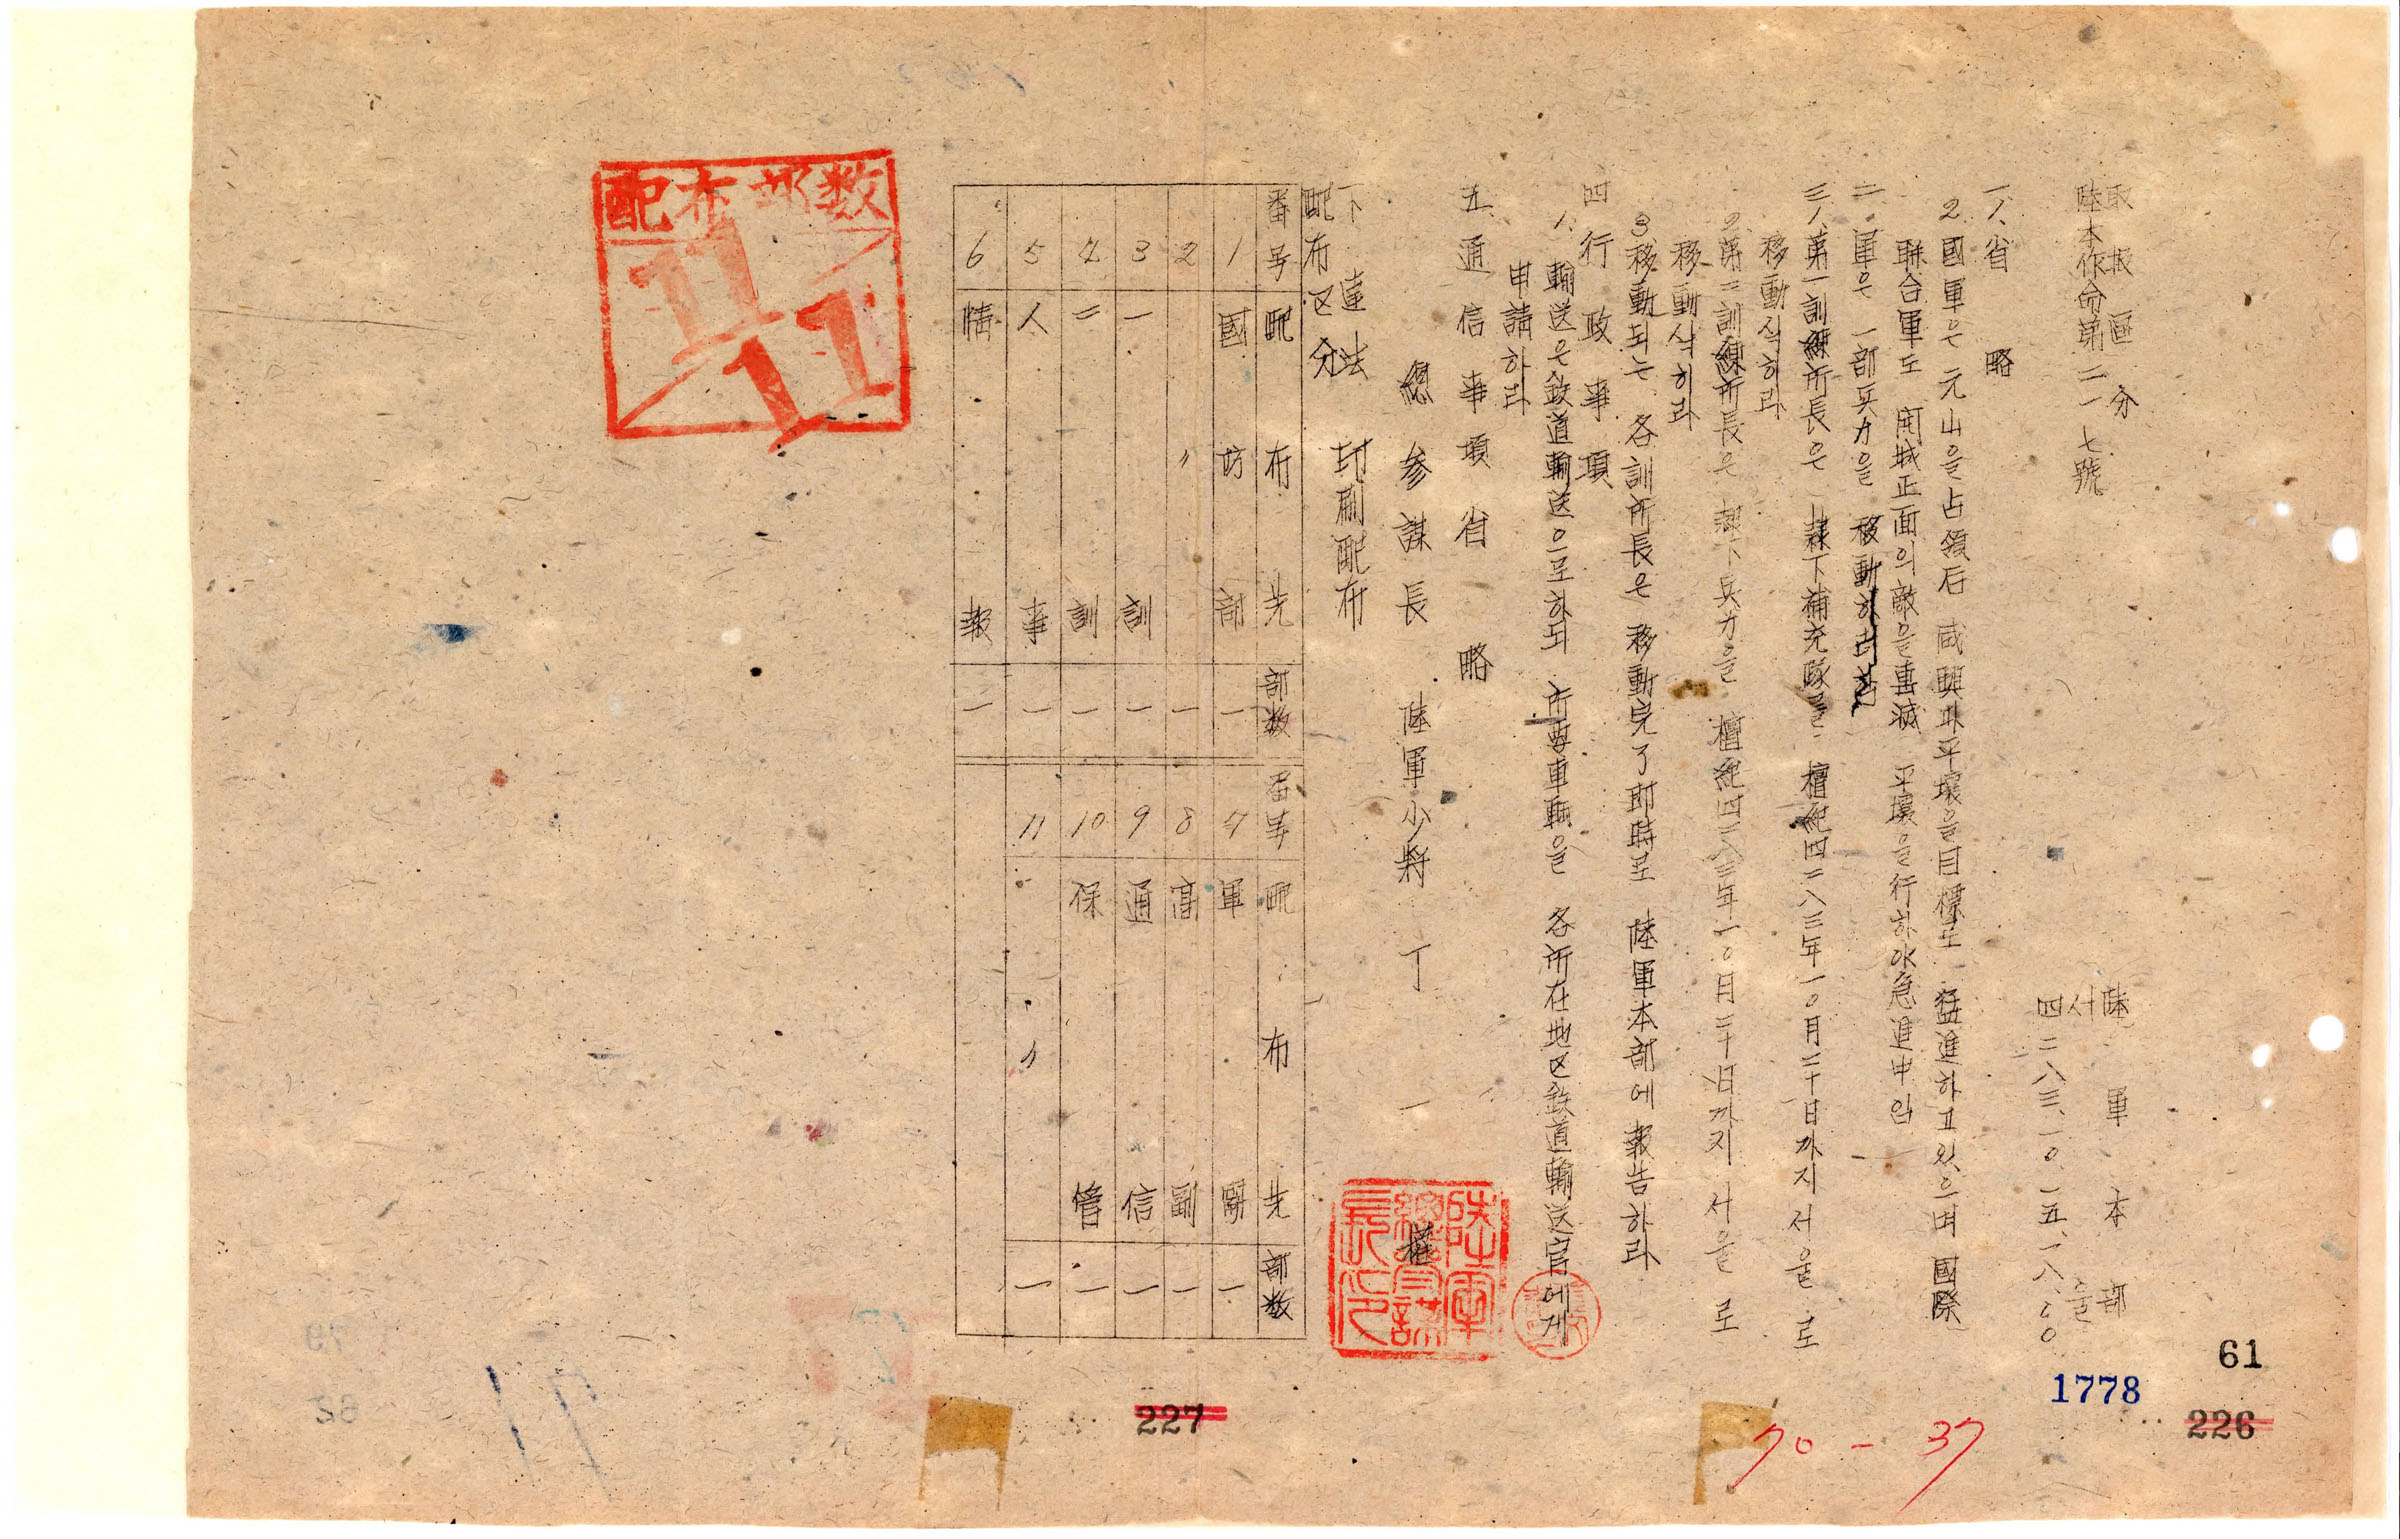 取扱區分
陸軍本部
陸本作命第二一七號
서울
四二八三、一〇、一五、一八、〇〇
一 1、省略
2 國軍은 元山을 占領后 咸興과 平壤을 目標로 猛進하고 있으며 國際
聯合軍도 開城正面의 敵을 擊滅 平壤을 行하야 急進中임
二、軍은 一部兵力을 移動하려 함
三 1、第一訓練所長은 隸下補充隊를 檀紀四二八三年一〇月二十日까지 서울로
移動식히라
2、第二訓練所長은 隸下兵力을 檀紀四二八三年一〇月二十日까지 서울로
移動식히라
3 移動되는 各訓所長은 移動完了卽時로 陸軍本部에 報告하라
四 行政事項
1、輸送은 鉄道輸送으로 하되 所要車輛을 各所在地区鉄道輸送官에게
申請하라
五、通信事項 省略
總參謀長 陸軍少將 丁 一 權
陸軍總參謀長印
下達法 印刷配布
配布区分
番号 配布先 部数 番号 配布先 部数
1 國坊部 一 7 軍 一
2 〃 一 8 高副 一
3 一訓 一 9 通信 一
4 二訓 一 10 保管 一
5 人事 一 11 〃 一
6 情報 一
配布部数
11
11
61
1778
226
227
70-37